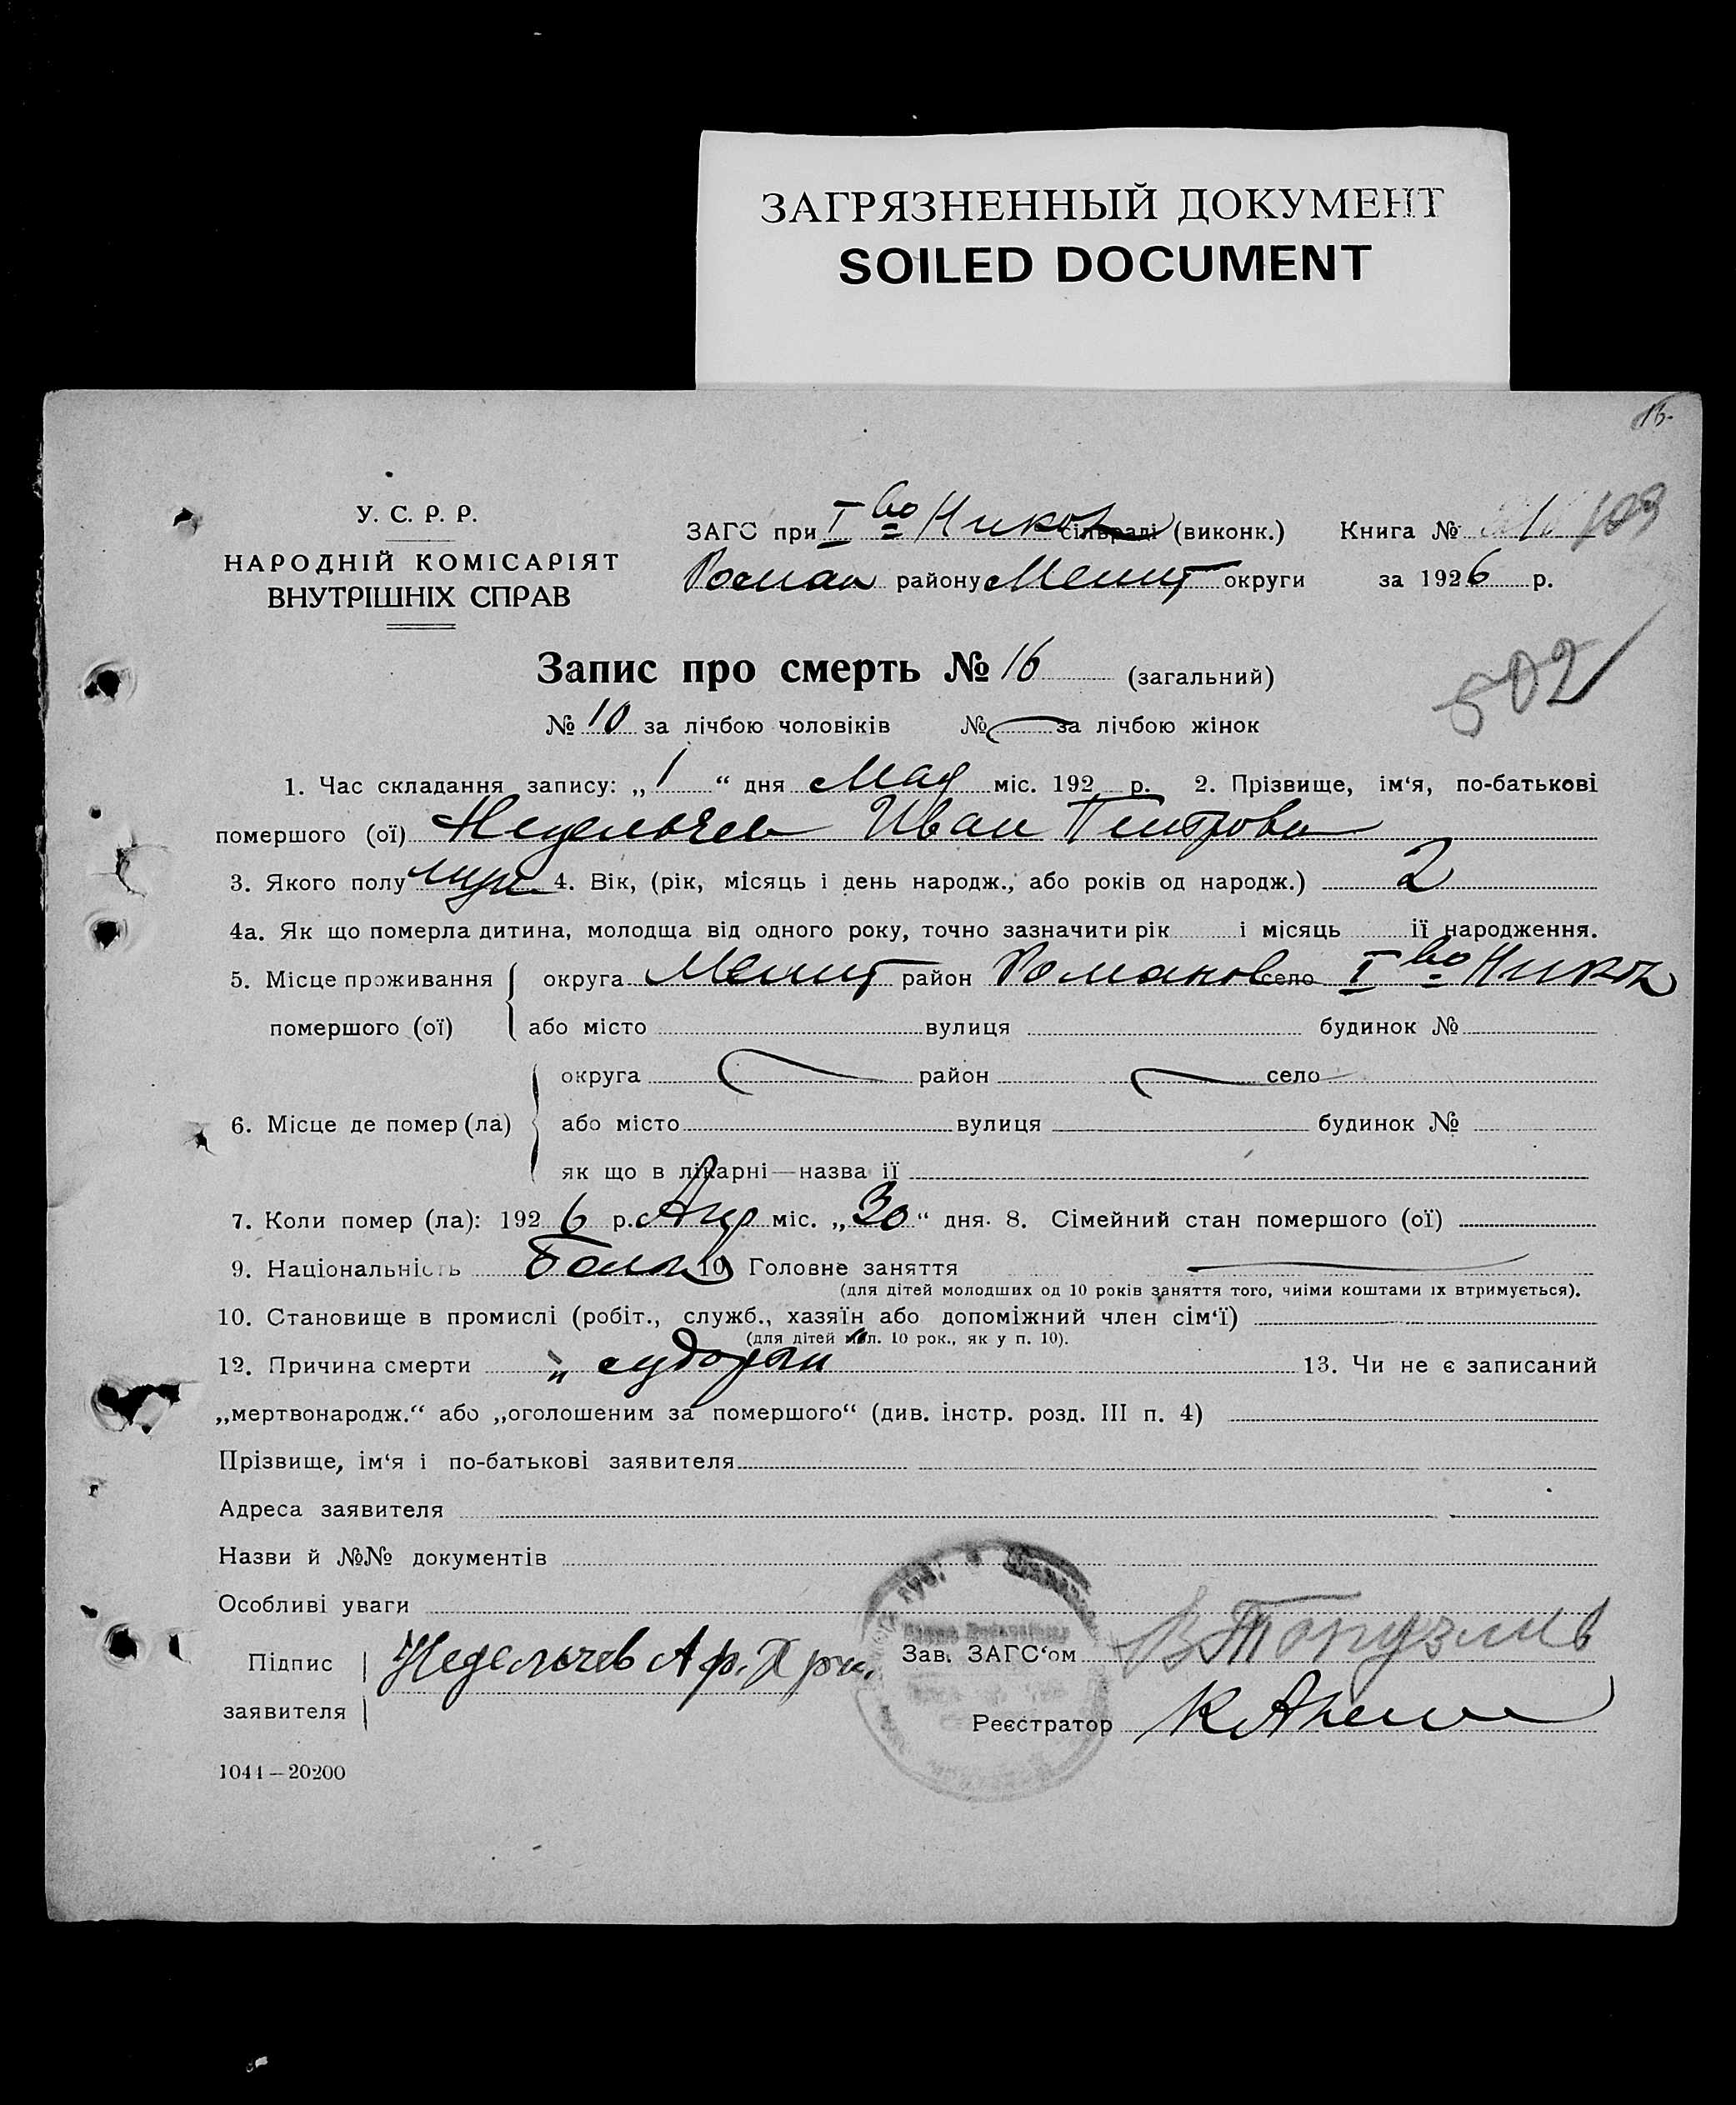 ЗАГРЯЗНЕННЫЙ ДОКУМЕНТ
SOILED DOCUMENT
16
У. С. Р. Р.
НАРОДНІЙ КОМІСАРІЯТ
ВНУТРІШНІХ СПРАВ
ЗАГС при I во Никол сільраді (виконк.) Книга № 1 103
Роман району Мелит округи за 1926 р.
Запис про смерть № 16 (загальний)
502
№ 10 за лічбою чоловіків № за лічбою жінок
1. Час складання запису: „1“ дня Мая міс. 192 р. 2. Прізвище, ім‘я, по-батькові
помершого (ої) Недельчев Иван Петрови
3. Якого полу муж 4. Вік, (рік, місяць і день народж., або років од народж.) 2
4а. Як що померла дитина, молодща від одного року, точно зазначити рік і місяць її народження.
5. Місце проживання округа Мелит район Романов село I во Никол
помершого (ої) або місто вулиця будинок №
округа район село
6. Місце де помер (ла) або місто вулиця будинок №
як що в лікарні — назва ії
7. Коли помер (ла): 1926 р. Апр міс. „30“ дня. 8. Сімейний стан помершого (ої)
9. Національність Болг 10 Головне заняття
(для дітей молодших од 10 років заняття того, чиїми коштами їх втримується).
10. Становище в промислі (робіт., служб., хазяїн або допоміжний член сім‘ї)
(для дітей мол. 10 рок., як у п. 10).
12. Причина смерти „ судороги 13. Чи не є записаний
„мертвонародж.“ або „оголошеним за помершого“ (див. інстр. розд. III п. 4)
Прізвище, ім‘я і по-батькові заявителя
Адреса заявителя
Назви й №№ документів
Особливі уваги
Підпис заявителя Недельчев Аф. Хри. Зав. ЗАГС‘ом
Реєстратор
1044—20200